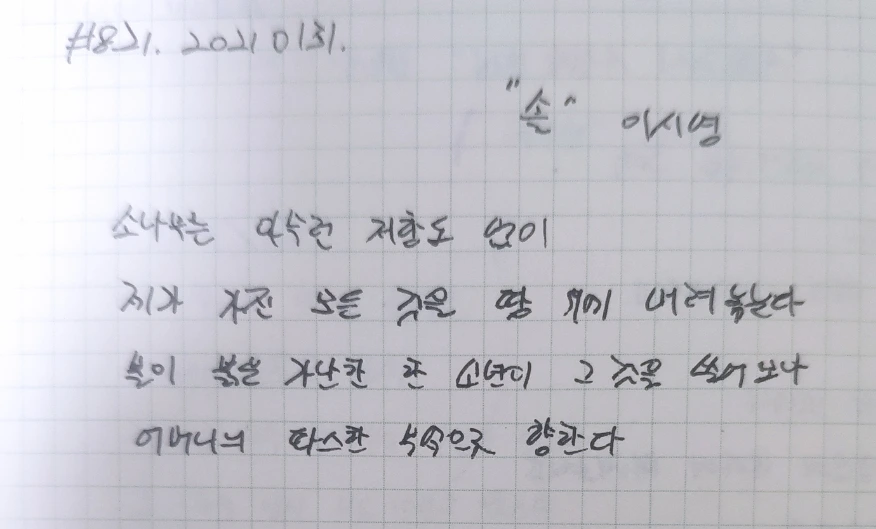 #821. 2021 0131.
"솔" 이시영
소나무는 아무런 저항도 없이
제가 가진 모든 것을 땅 위에 내려놓는다
볼이 붉은 가난한 한 소년이 그 것을 쓸어 모아
어머니의 따스한 부엌으로 향한다